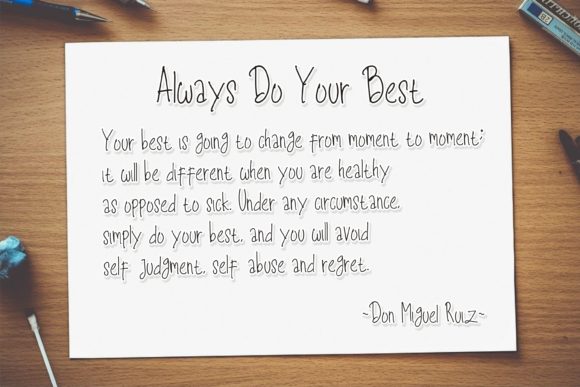 Always Do Your Best
Your best is going to change from moment to moment;
it will be different when you are healthy
as opposed to sick. Under any circumstance,
simply do your best, and you will avoid
self judgment, self abuse and regret.
~Don Miguel Ruiz~